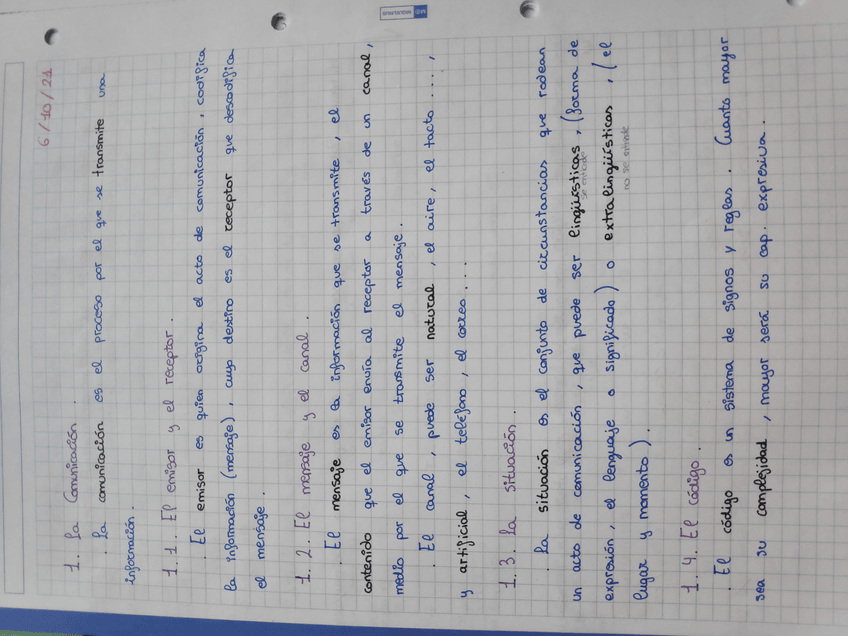 6/10/21
1. La Comunicación.
. La comunicación es el proceso por el que se transmite una
información.
1.1. El emisor y el receptor.
. El emisor es quien origina el acto de comunicación, codifica
la información (mensaje), cuyo destino es el receptor que descodifica
el mensaje.
1.2. El mensaje y el canal.
. El mensaje es la información que se transmite, el
contenido que el emisor envía al receptor a través de un canal,
medio por el que se transmite el mensaje.
. El canal, puede ser natural, el aire, el tacto...,
y artificial, el teléfono, el correo...
1.3. La situación.
. La situación es el conjunto de circunstancias que rodean
un acto de comunicación, que puede ser lingüísticas, (forma de
se entiende
expresión, el lenguaje o significado) o extralingüísticas, (el
no se entiende
lugar y momento).
1.4. El código.
. El código es un sistema de signos y reglas. Cuanto mayor
sea su complejidad, mayor será su cap. expresiva.